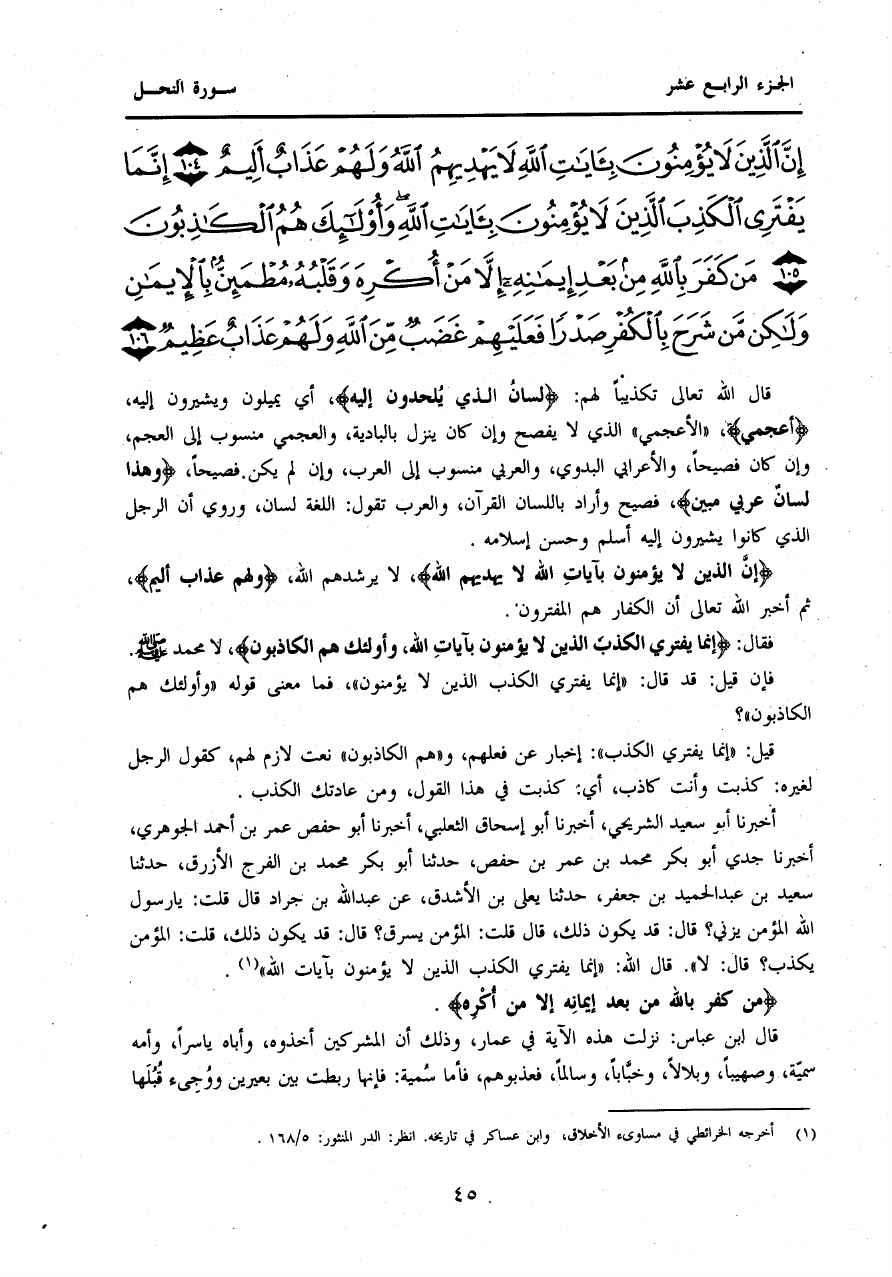 الجزء الرابع عشر
سورة النحل
إِنَّ ٱلَّذِينَ لَا يُؤْمِنُونَ بِـَٔايَـٰتِ ٱللَّهِ لَا يَهْدِيهِمُ ٱللَّهُ وَلَهُمْ عَذَابٌ أَلِيمٌ ﴿١٠٤﴾ إِنَّمَا
يَفْتَرِى ٱلْكَذِبَ ٱلَّذِينَ لَا يُؤْمِنُونَ بِـَٔايَـٰتِ ٱللَّهِ ۖ وَأُو۟لَـٰٓئِكَ هُمُ ٱلْكَـٰذِبُونَ
﴿١٠٥﴾ مَن كَفَرَ بِٱللَّهِ مِنۢ بَعْدِ إِيمَـٰنِهِۦٓ إِلَّا مَنْ أُكْرِهَ وَقَلْبُهُۥ مُطْمَئِنٌّۢ بِٱلْإِيمَـٰنِ
وَلَـٰكِن مَّن شَرَحَ بِٱلْكُفْرِ صَدْرًا فَعَلَيْهِمْ غَضَبٌ مِّنَ ٱللَّهِ وَلَهُمْ عَذَابٌ عَظِيمٌ ﴿١٠٦﴾
قال الله تعالى تكذيباً لهم: ﴿لسانُ الذي يُلحدون إليه﴾، أي يميلون ويشيرون إليه،
﴿أعجمي﴾، «الأعجمي» الذي لا يفصح وإن كان ينزل بالبادية، والعجمي منسوب إلى العجم،
وإن كان فصيحاً، والأعرابي البدوي، والعربي منسوب إلى العرب، وإن لم يكن فصيحاً، ﴿وهذا
لسانٌ عربي مبين﴾، فصيح وأراد باللسان القرآن، والعرب تقول: اللغة لسان، وروي أن الرجل
الذي كانوا يشيرون إليه أسلم وحسن إسلامه .
﴿إنَّ الذين لا يؤمنون بآياتِ الله لا يهديهم الله﴾، لا يرشدهم الله، ﴿ولهم عذاب أليم﴾،
ثم أخبر الله تعالى أن الكفار هم المفترون.
فقال: ﴿إنما يفتري الكذبَ الذين لا يؤمنون بآياتِ الله، وأولئك هم الكاذبون﴾، لا محمد ﷺ.
فإن قيل: قد قال: «إنما يفتري الكذب الذين لا يؤمنون»، فما معنى قوله «وأولئك هم
الكاذبون»؟
قيل: «إنما يفتري الكذب»: إخبار عن فعلهم، و«هم الكاذبون» نعت لازم لهم، كقول الرجل
لغيره: كذبت وأنت كاذب، أي: كذبت في هذا القول، ومن عادتك الكذب .
أخبرنا أبو سعيد الشريحي، أخبرنا أبو إسحاق الثعلبي، أخبرنا أبو حفص عمر بن أحمد الجوهري،
أخبرنا جدي أبو بكر محمد بن عمر بن حفص، حدثنا أبو بكر محمد بن الفرج الأزرق، حدثنا
سعيد بن عبدالحميد بن جعفر، حدثنا يعلى بن الأشدق، عن عبدالله بن جراد قال قلت: يارسول
الله المؤمن يزني؟ قال: قد يكون ذلك، قال قلت: المؤمن يسرق؟ قال: قد يكون ذلك، قلت: المؤمن
يكذب؟ قال: لا». قال الله: «إنما يفتري الكذب الذين لا يؤمنون بآيات الله»(١) .
﴿من كفر بالله من بعد إيمانِه إلا من أُكْرِه﴾ .
قال ابن عباس: نزلت هذه الآية في عمار، وذلك أن المشركين أخذوه، وأباه ياسراً، وأمه
سميّة، وصهيباً، وبلالاً، وخبَّاباً، وسالماً، فعذبوهم، فأما سُمية: فإنها ربطت بين بعيرين ووُجىء قُبُلَها
(١) أخرجه الخرائطي في مساوىء الأخلاق، وابن عساكر في تاريخه. انظر: الدر المنثور: ١٦٨/٥ .
٤٥